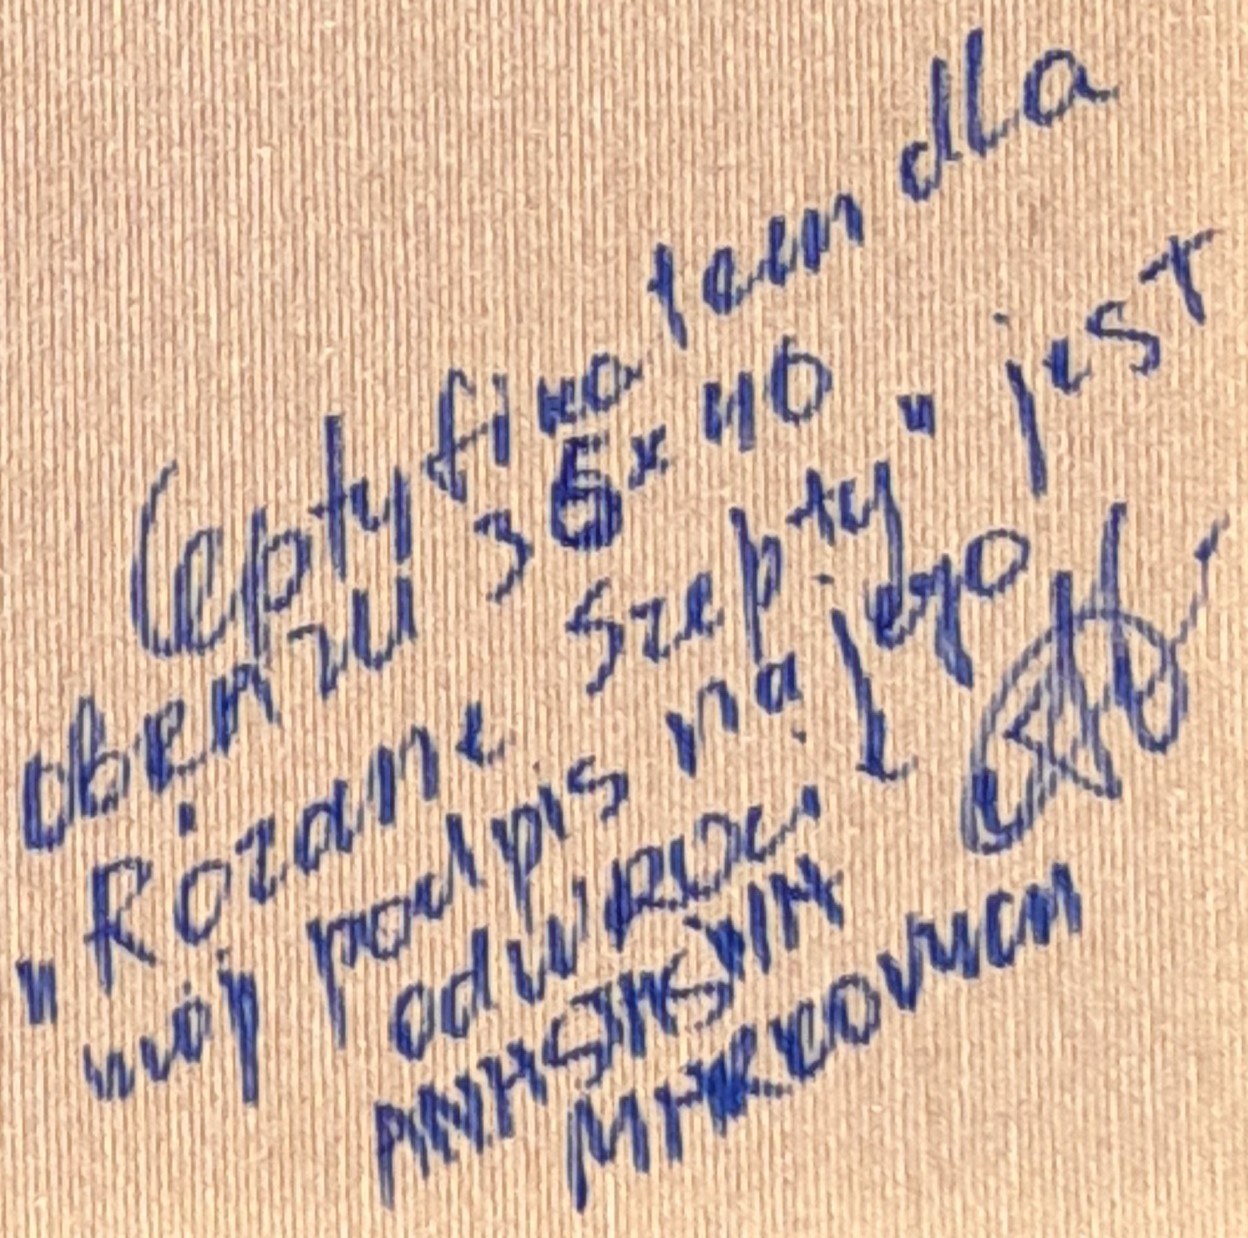 Certyfikatem dla
obrazu 35x40
"Różane szepty" jest
mój podpis na jego
odwroci
ANASTASIIA
MARKOVYCH